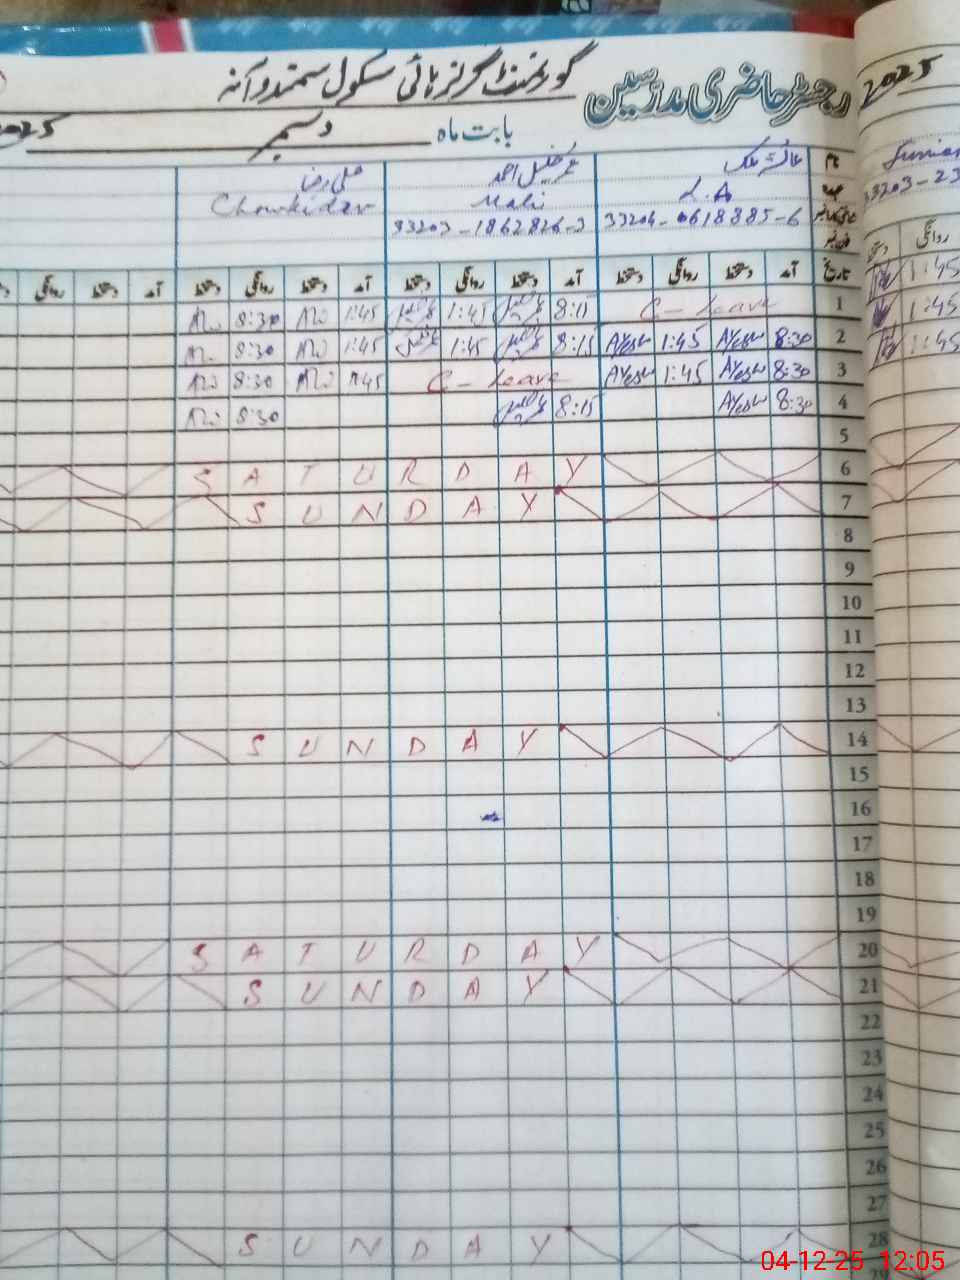 رجسٹر حاضری مدرسین گورنمنٹ گرلز ہائی سکول سمندوآنہ
2025
بابت ماہ دسمبر 2025
نام عائشہ ملک علی رضا
L.A Mali Chowkidar
33204-0618885-6 33203-1862826-3
33203-23
تاریخ آمد دستخط روانگی دستخط آمد دستخط روانگی دستخط آمد دستخط روانگی دستخط آمد دستخط روانگی
روانگی دستخط
1 C-Leave 8:15 1:45 1:45 Ali 8:30 Ali
1:45
2 8:30 Ayesha 1:45 Ayesha 8:15 1:45 1:45 Ali 8:30 Ali
1:45
3 8:30 Ayesha 1:45 Ayesha C-Leave 1:45 Ali 8:30 Ali
1:45
4 8:30 Ayesha 8:15 8:30 Ali
5
6 SATURDAY
7 SUNDAY
8
9
10
11
12
13
14 SUNDAY
15
16
17
18
19
20 SATURDAY
21 SUNDAY
22
23
24
25
26
27
28 SUNDAY
29
04-12-25 12:05